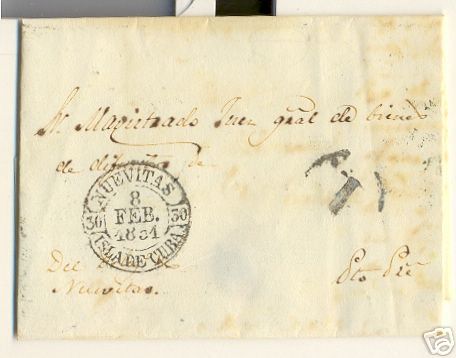 Sr Magistrado Juez gral de bienes
de difuntos de
NUEVITAS
30 8 30
FEB.
1851
ISLA DE CUBA
Nuevitas.
Pto Ppe